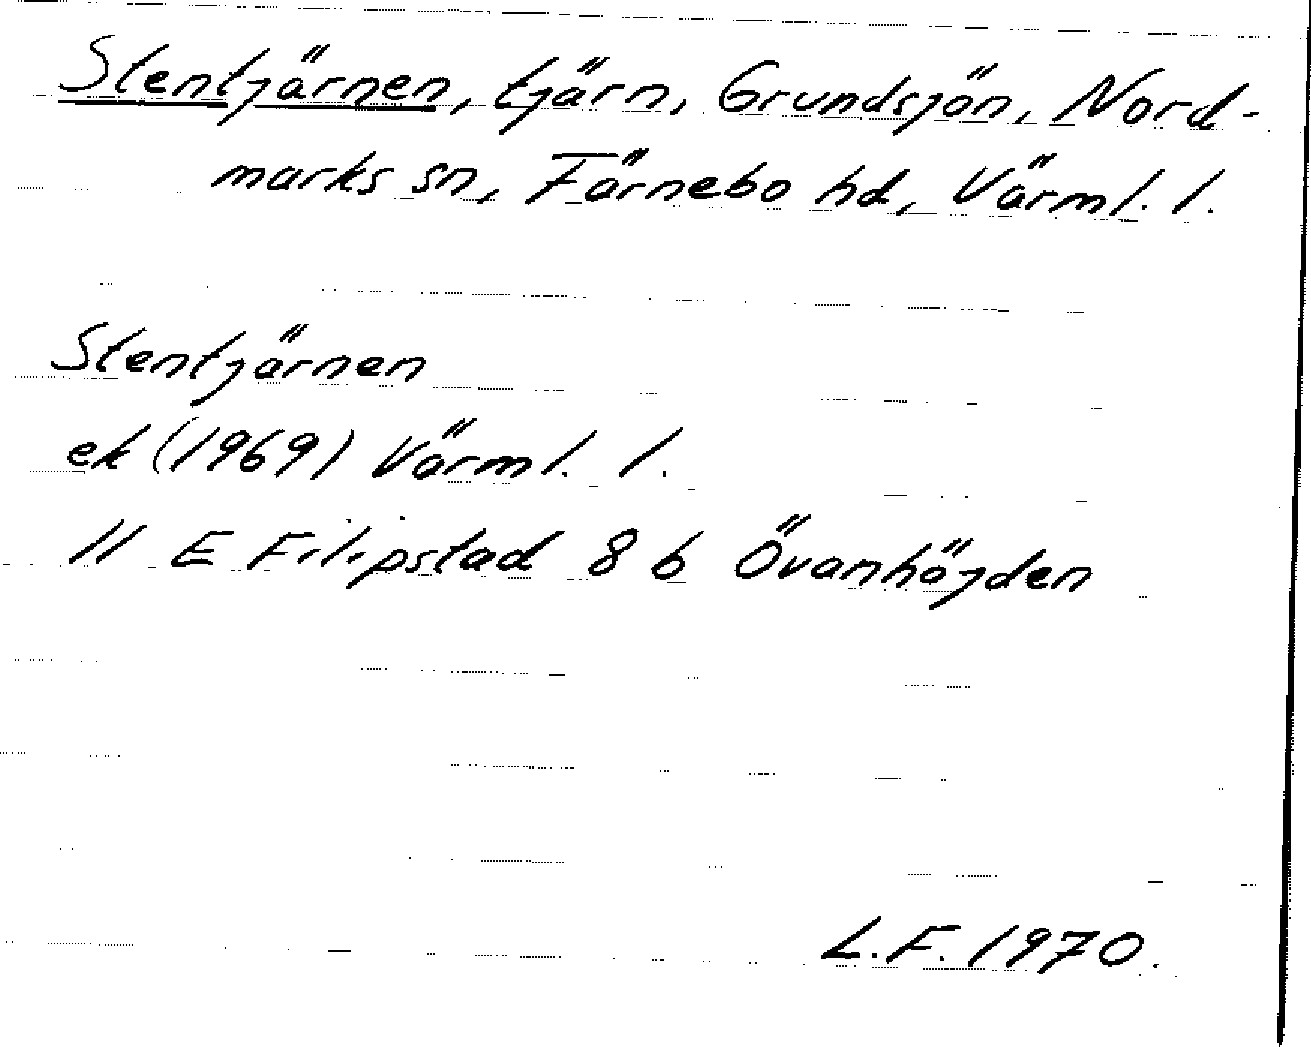 Stentjärnen, tjärn, Grundsjön, Nord-
marks sn, Färnebo hd, Värml. l.
Stentjärnen
ek (1969) Värml. l.
11 E Filipstad 8 b Övanhöjden
L.F. 1970.